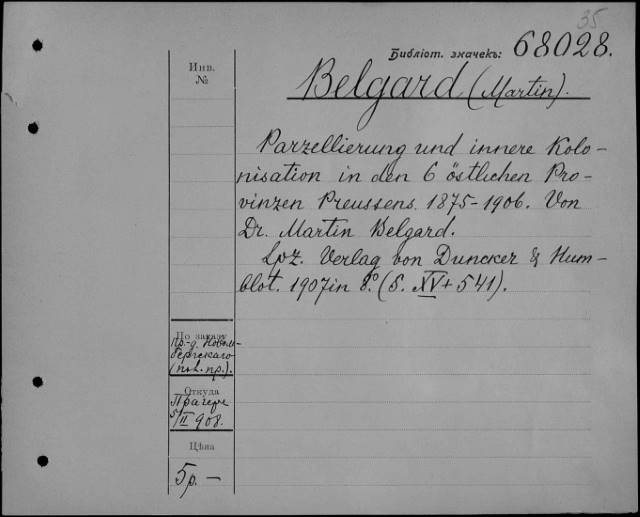 35
Библіот. значекъ: 68028.
Инв.
№
Belgard (Martin).
Parzellierung und innere Kolo-
nisation in den 6 östlichen Pro-
vinzen Preussens. 1875-1906. Von
Dr. Martin Belgard.
Lpz. Verlag von Duncker & Hum-
blot. 1907 in 8.° (S. XV + 541).
По заказу
Пр.-д. Новом-
бергскаго
(пол. пр.).
Откуда
Прагеръ
5/II 908.
Цѣна
5р. —